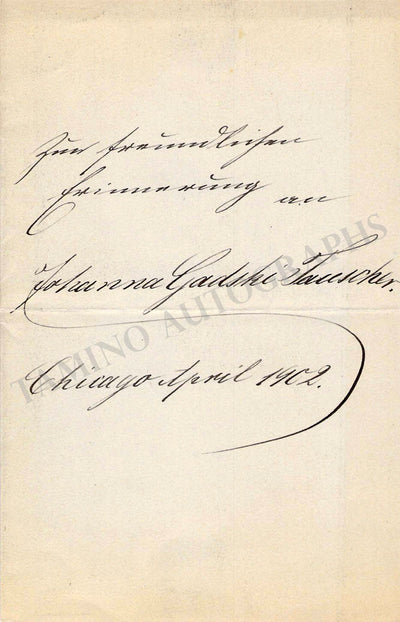 Zur freundlichen
Erinnerung
an
Johanna Gadski Tauscher.
TAMINO AUTOGRAPHS
Chicago April 1902.